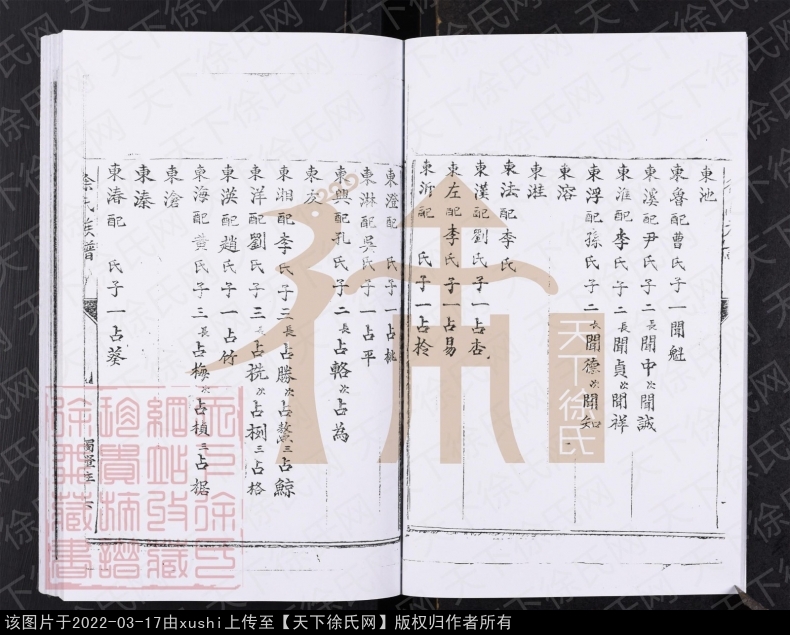 東池
東魯配曹氏子一聞魁
東溪配尹氏子二長聞中次聞誠
東淮配李氏子二長聞貞次聞祥
東浮配孫氏子二長聞德次聞知
東溶
東洭
東法配李氏
東漢配劉氏子一占杏
東左配李氏子一占易
東沂配 氏子一占柃
東澄配 氏子一占桃
東淋配吳氏子一占平
東興配孔氏子二長占輅次占為
東友
東湘配李氏子三長占勝次占鰲三占鯨
東洋配劉氏子三長占桄次占栵三占格
東渶配趙氏子一占竹
東海配黄氏子三長占梅次占楨三占椐
東滄
東溱
東湷配 氏子一占葵
徐氏族譜
天下徐氏
天下徐氏网
该图片于2022-03-17由xushi上传至【天下徐氏网】版权归作者所有